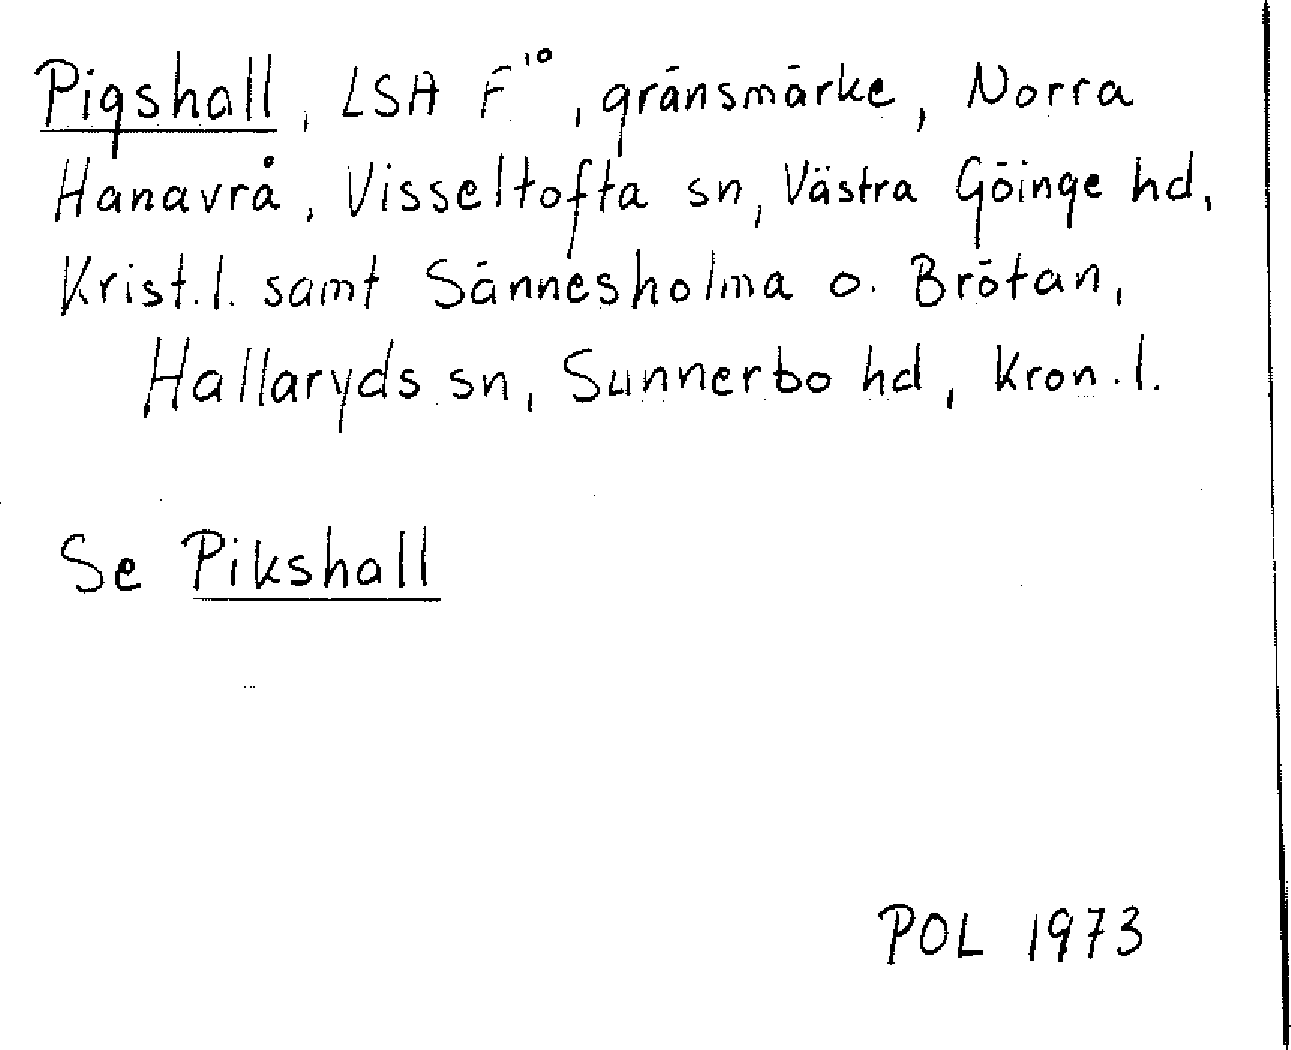 Pigshall, LSA F¹⁰, gränsmärke, Norra
Hanavrå, Visseltofta sn, Västra Göinge hd,
Krist. l. samt Sännesholma o. Brötan,
Hallaryds sn, Sunnerbo hd, Kron. l.
Se Pikshall
POL 1973